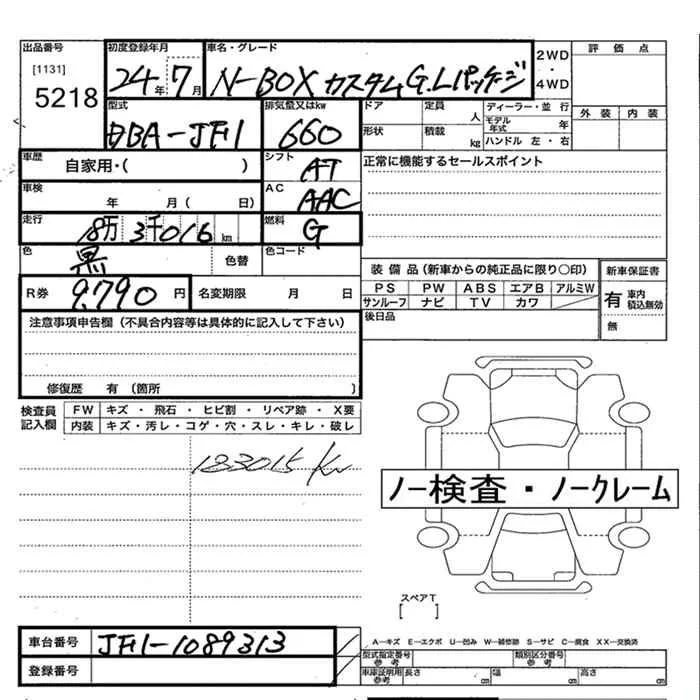 出品番号 初度登録年月 車名・グレード 2WD・4WD 評価点
[1131] 5218 24年7月 N-BOX カスタム G.Lパッケージ
型式 排気量又はkw ドア 定員 人 ディーラー・並行 外装 内装
DBA-JF1 660 形状 積載 kg モデル年式 年
ハンドル 左・右
車歴 自家用・( ) シフト AT 正常に機能するセールスポイント
車検 年 月( 日) AC AAC
走行 18万3千016km 燃料 G
色 黒 色替 色コード
R券 9,790円 名変期限 月 日
装備品(新車からの純正品に限り○印) 新車保証書
PS PW ABS エアB アルミW
サンルーフ ナビ TV カワ
有 車内積込無効
無
後日品
注意事項申告欄(不具合内容等は具体的に記入して下さい)
修復歴 有(箇所 )
検査員記入欄 FW キズ・飛石・ヒビ割・リペア跡・X要
内装 キズ・汚レ・コゲ・穴・スレ・キレ・破レ
183015 Km
ノー検査・ノークレーム
スペアT
[ ]
車台番号 JF1-1089313
登録番号
A―キズ E―エクボ U―凹み W―補修跡 S―サビ C―腐食 XX―交換済
型式指定番号 参考 類別区分番号 参考
車庫証明用 参考 長さ cm 幅 cm 高さ cm